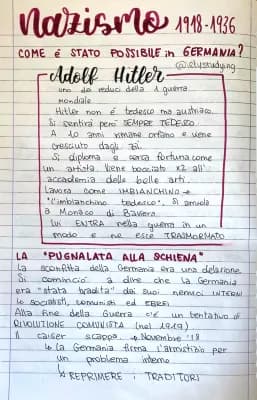 nazismo 1918-1936
COME é STATO POSSIBILE in GERMANIA?
@stystudying
Adolf Hitler
uno dei reduci della 1 guerra
mondiale
Hitler non é tedesco ma austriaco.
Si sentirà però SEMPRE TEDESCO.
A 10 anni rimane orfano e viene
cresciuto dagli zii.
Si diploma e cerca fortuna come
un artista. Viene bocciato x2 all'
accademia delle belle arti.
Lavora come IMBIANCHINO →
"l'imbianchino tedesco". Si arruola
a Monaco di Baviera
Lui ENTRA nella guerra in un
modo e ne esce TRASFORMATO
LA "PUGNALATA ALLA SCHIENA"
La sconfitta della Germania era una delusione.
Si cominciò a dire che la Germania
era "stata tradita" dai suoi nemici INTERNI
↳ socialisti, comunisti ed EBREI
Alla fine della Guerra c'è un tentativo di
RIVOLUZIONE COMUNISTA (nel 1919)
Il caiser scappa → Novembre '18
↳ La Germania firma l'armistizio per
un problema interno
↳ REPRIMERE i TRADITORI